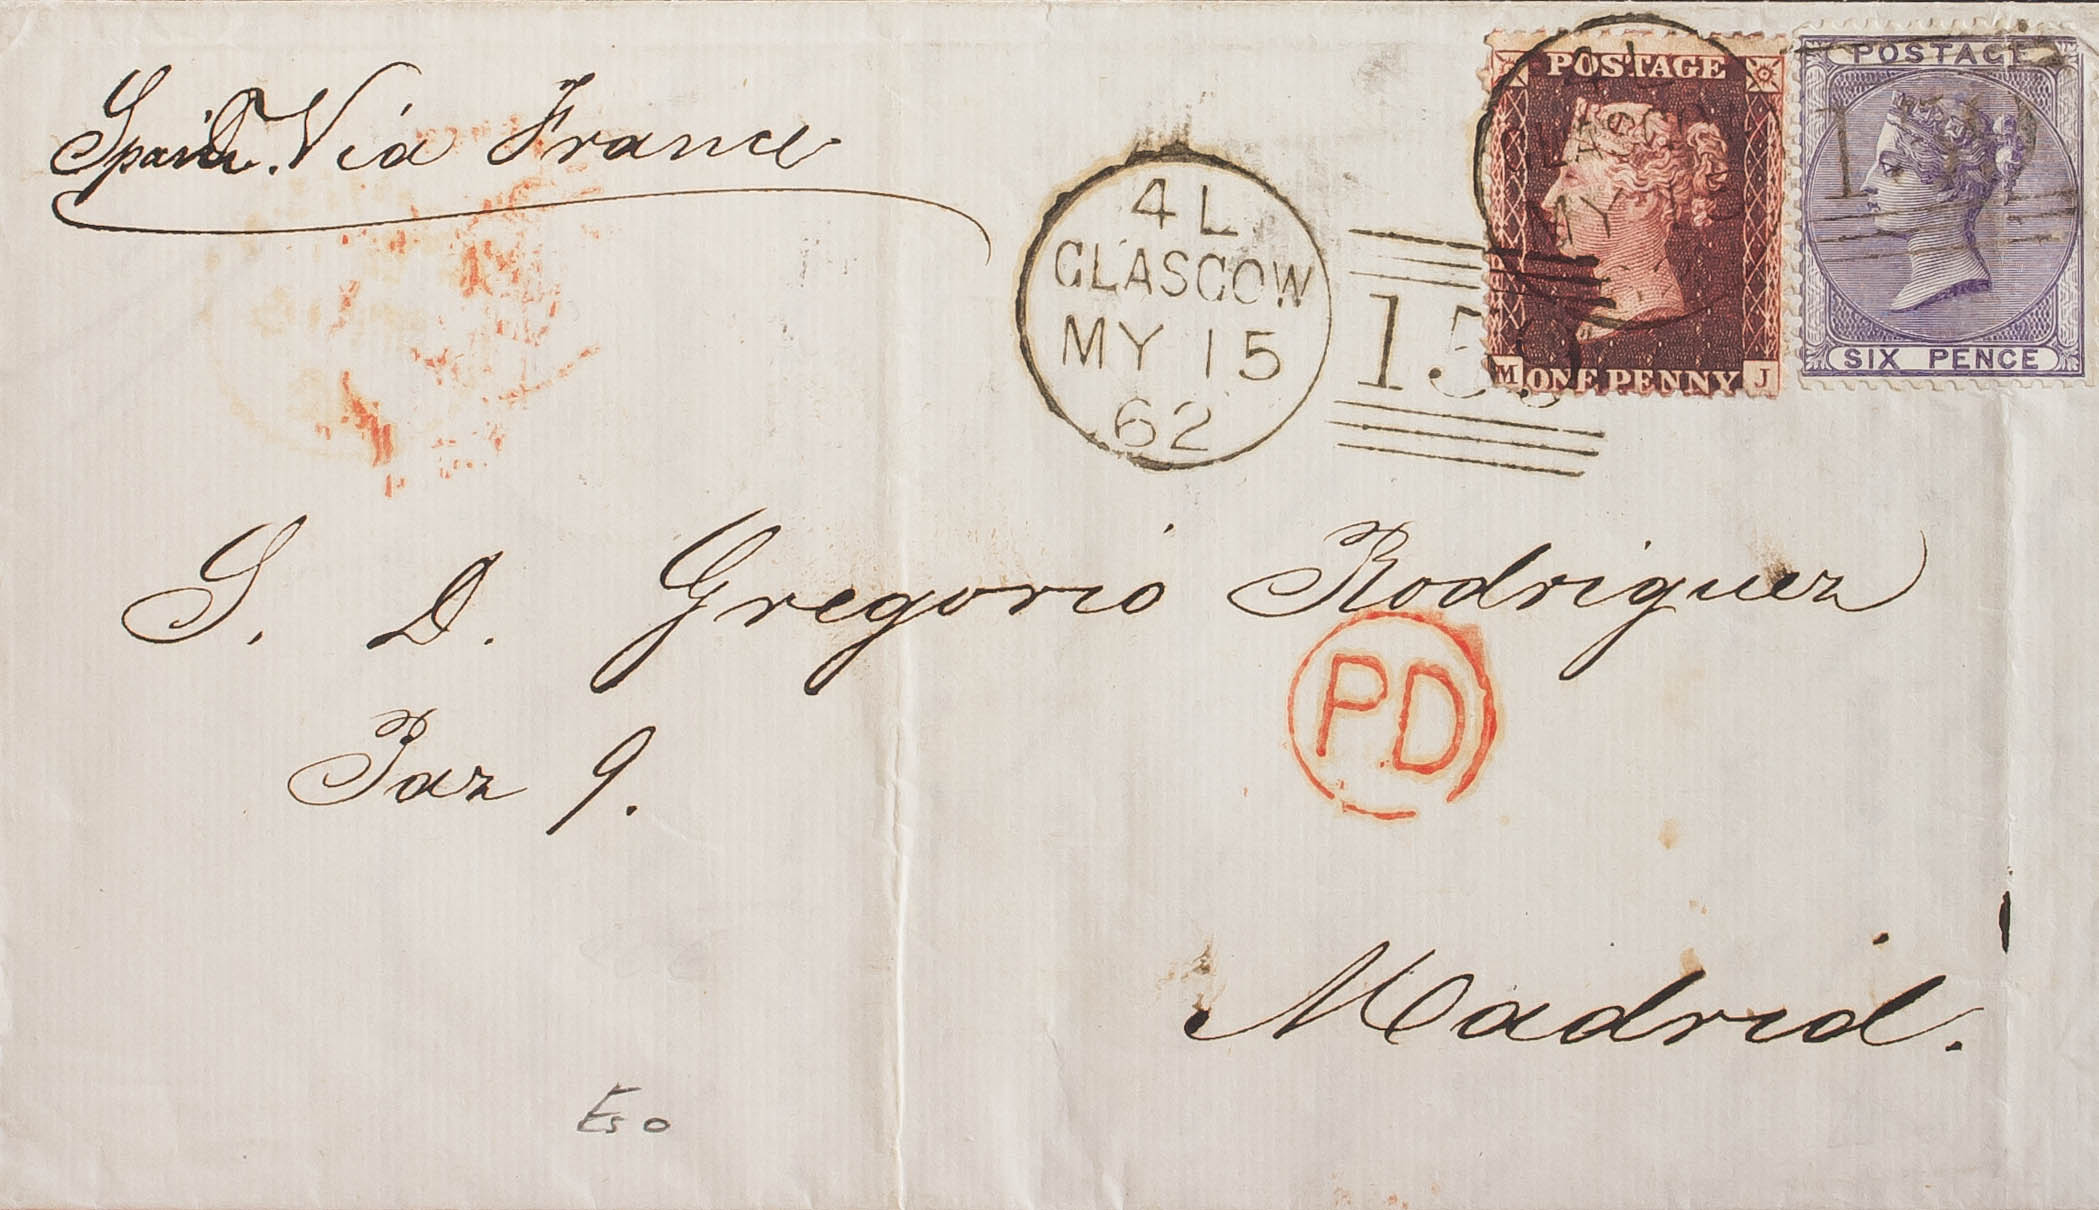 Spain. Via France
POSTAGE
M ONE PENNY J
POSTAGE
SIX PENCE
4 L
GLASGOW
MY 15
62
159
S. D. Gregorio Rodriguez
PD
Paz 9.
Madrid.